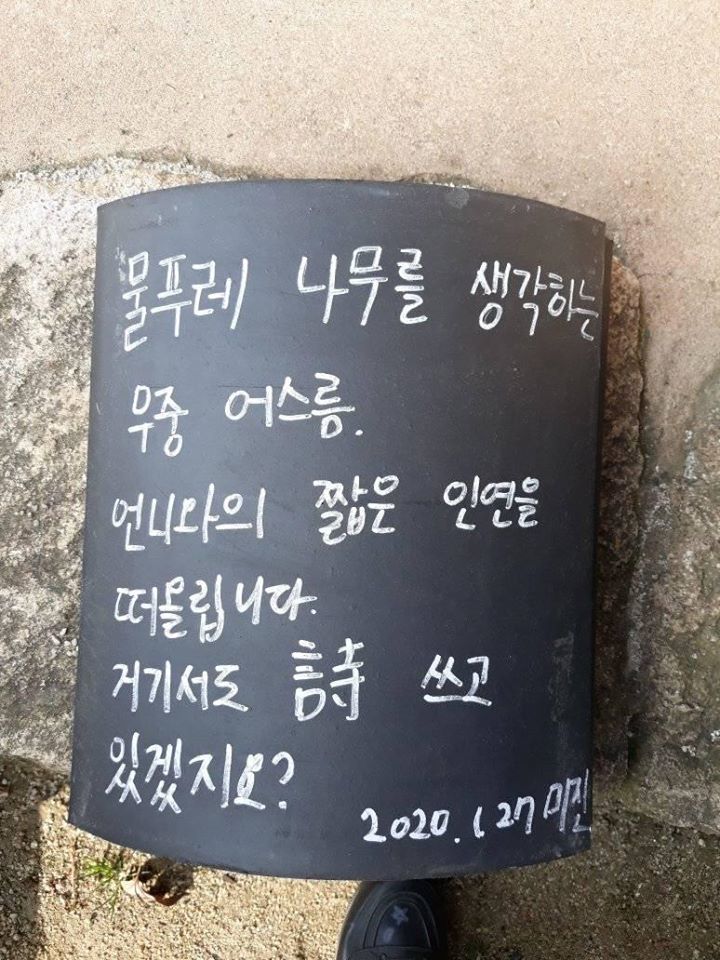 물푸레 나무를 생각하는
우중 어스름.
언니와의 짧은 인연을
떠올립니다.
거기서도 詩 쓰고
있겠지요?
2020.1 27 미진